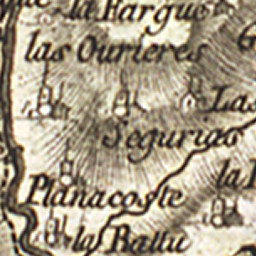 la Fargue
las Ourieres
Las
Segurias
la
Planacoste
la Ballu